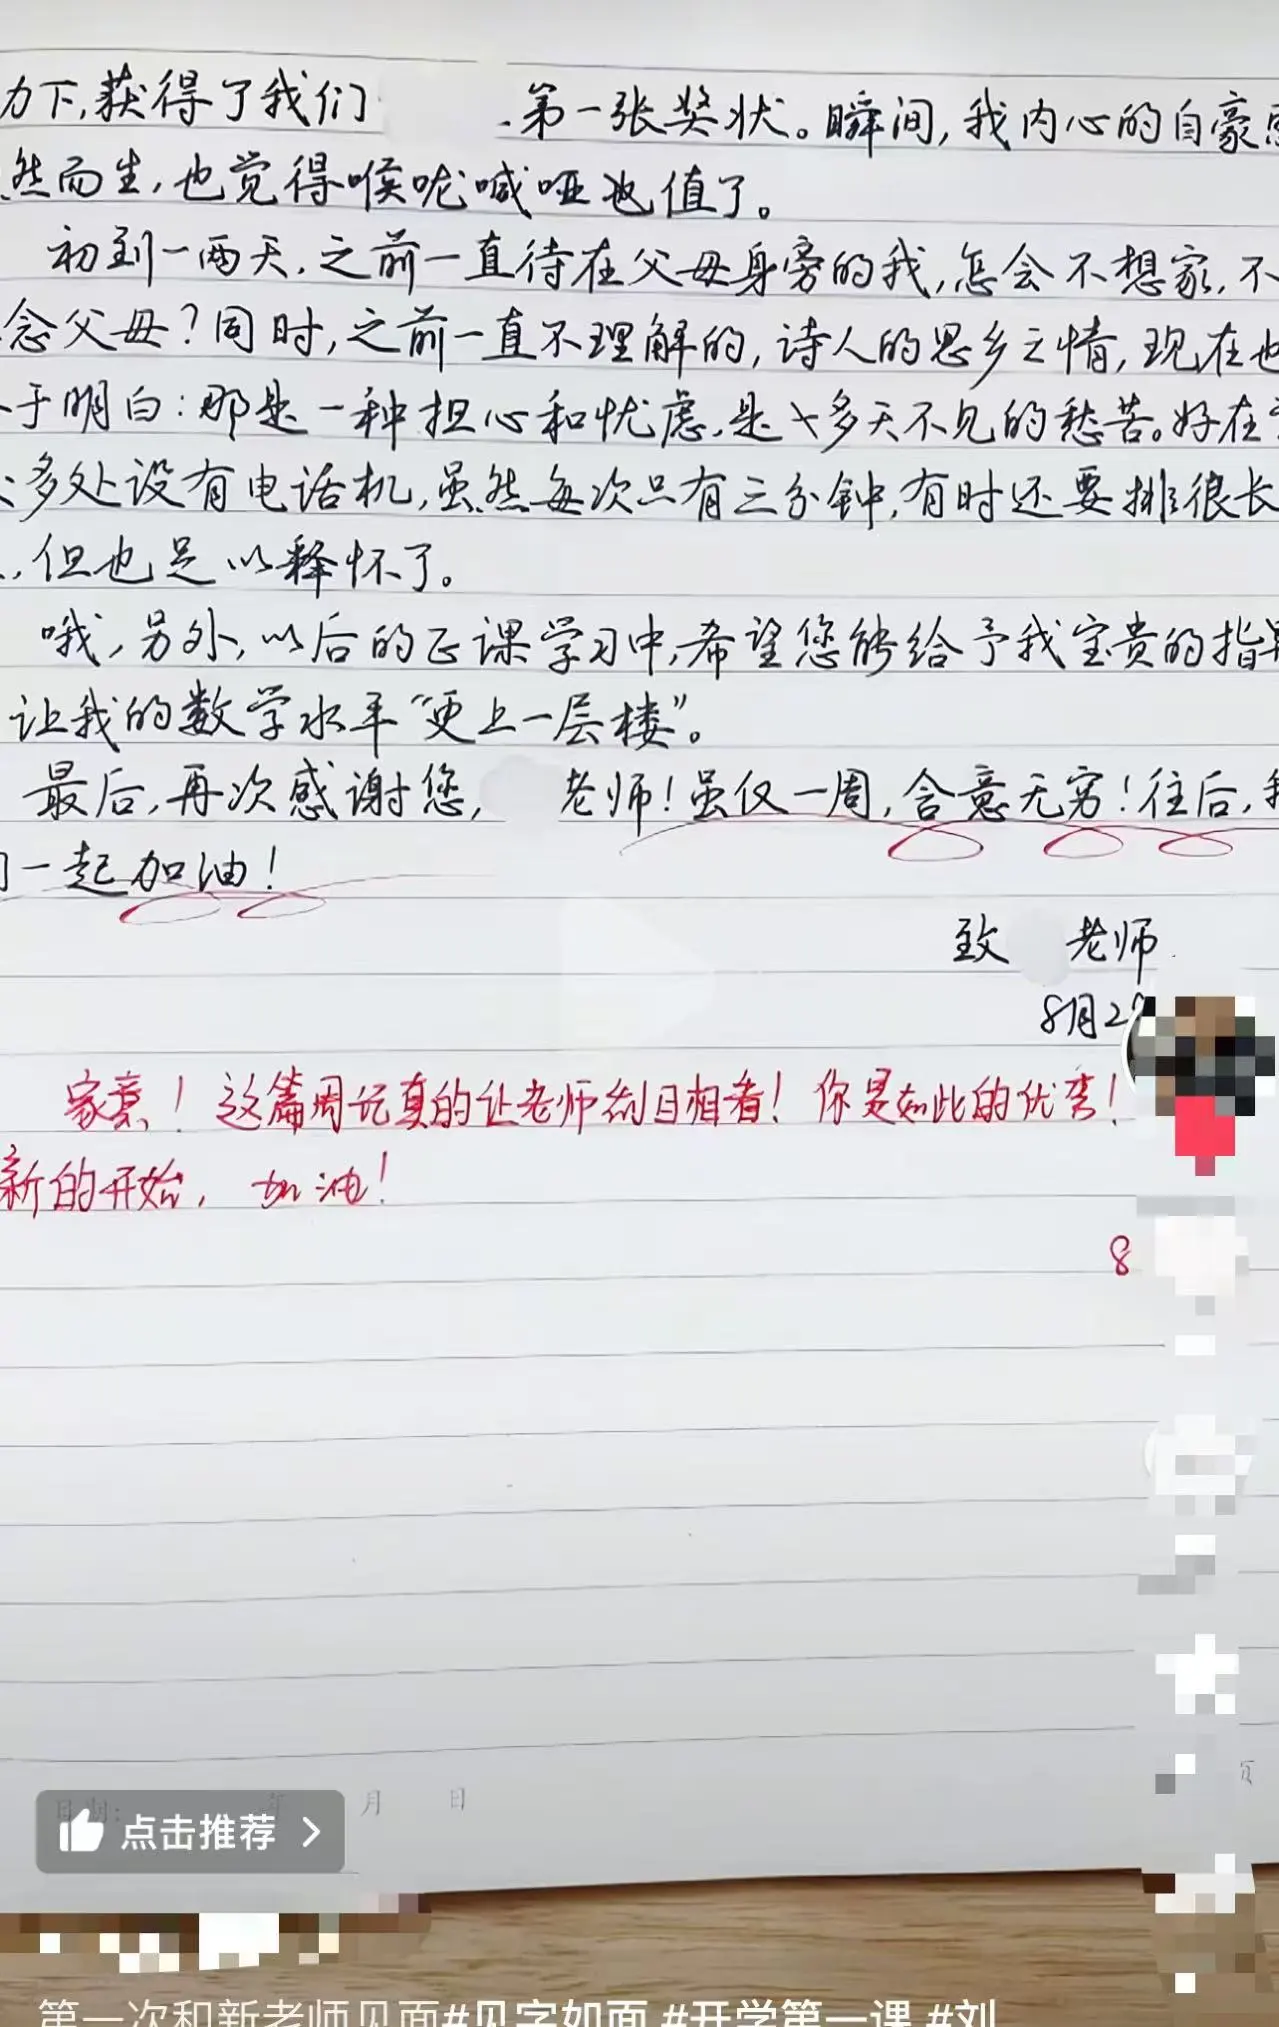 力下,获得了我们 第一张奖状。瞬间,我内心的自豪感
然而生,也觉得喉咙喊哑也值了。
初到一两天,之前一直待在父母身旁的我,怎会不想家,不
念父母?同时,之前一直不理解的,诗人的思乡之情,现在也
于明白:那是一种担心和忧虑,是十多天不见的愁苦。好在
多处设有电话机,虽然每次只有三分钟,有时还要排很长
,但也足以释怀了。
哦,另外,以后的正课学习中,希望您能给予我宝贵的指导
让我的数学水平“更上一层楼”。
最后,再次感谢您, 老师!虽仅一周,含意无穷!往后,我
们一起加油!
致 老师
8月2
家豪!这篇周记真的让老师刮目相看!你是如此的优秀!
新的开始,加油!
8
日期: 年 月 日
页
点击推荐 >
第一次和新老师见面#见字如面 #开学第一课 #刘